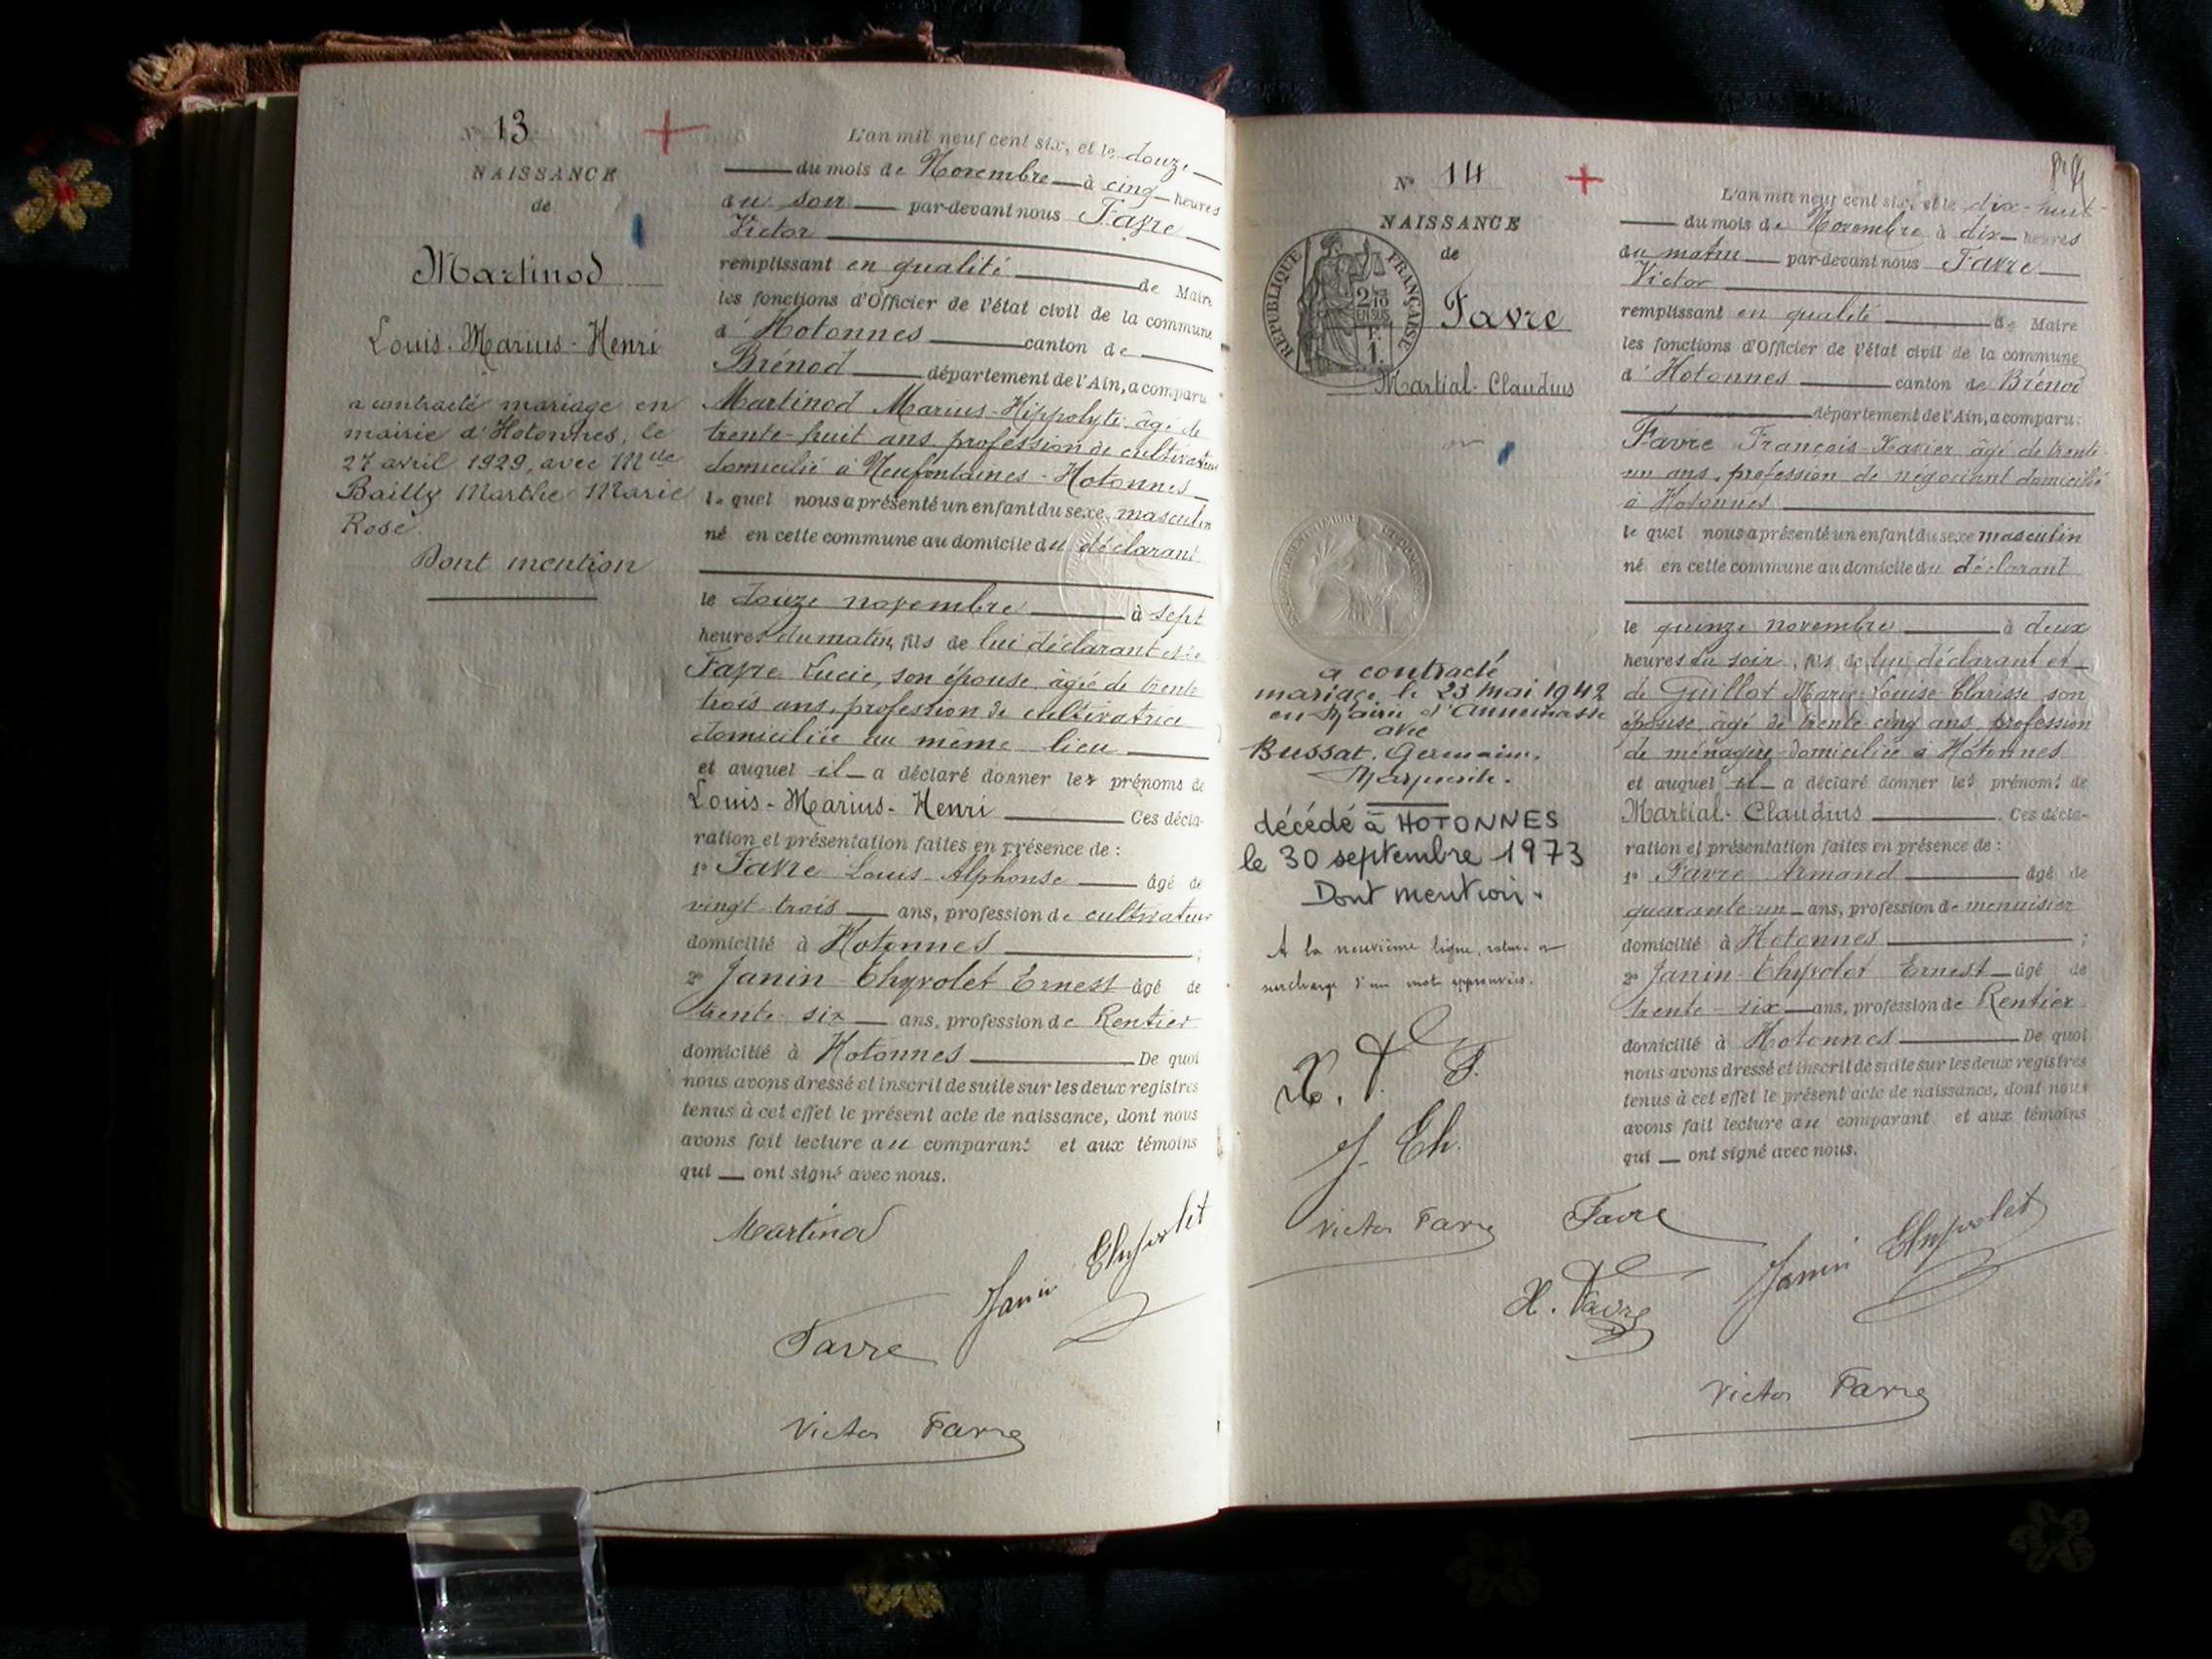 N° 13
NAISSANCE
de
Martinod
Louis-Marius-Henri
a contracté mariage en
mairie d'Hotonnes, le
27 avril 1929, avec Mlle
Bailly Marthe Marie
Rose.
Dont mention
L'an mil neuf cent six, et le douze
du mois de Novembre à cinq heures
du soir par-devant nous Favre
Victor
remplissant en qualité de Maire
les fonctions d'Officier de l'état civil de la commune
d'Hotonnes canton de
Brénod département de l'Ain, a comparu
Martinod Marius-Hippolyte âgé de
trente-huit ans, profession de cultivateur
domicilié à Neufontaines-Hotonnes
lequel nous a présenté un enfant du sexe masculin
né en cette commune au domicile du déclarant
le douze novembre à sept
heures du matin, fils de lui déclarant et de
Favre Lucie, son épouse, âgée de trente
trois ans, profession de cultivatrice
domiciliée au même lieu
et auquel il a déclaré donner les prénoms de
Louis-Marius-Henri Ces décla-
ration et présentation faites en présence de :
1° Favre Louis-Alphonse âgé de
vingt trois ans, profession de cultivateur
domicilié à Hotonnes ;
2° Janin-Thyvolet Ernest âgé de
trente-six ans, profession de Rentier
domicilié à Hotonnes De quoi
nous avons dressé et inscrit de suite sur les deux registres
tenus à cet effet le présent acte de naissance, dont nous
avons fait lecture au comparant et aux témoins
qui ont signé avec nous.
Martinod
Janin Thyvolet
Favre
Victor Favre
N° 14
NAISSANCE
de
REPUBLIQUE FRANÇAISE
2/10
EN SUS
F.
1.
Favre
Martial-Claudius
a contracté
mariage le 23 mai 1942
en Mairie d'Annemasse
avec
Bussat, Germaine,
Marguerite.
décédé à HOTONNES
le 30 septembre 1973
Dont mention.
A la neuvième ligne, rature
surcharge d'un mot approuvées.
X. F.
J. Th.
Victor Favre
L'an mil neuf cent six, et le dix-huit
du mois de Novembre à dix heures
du matin par-devant nous Favre
Victor
remplissant en qualité de Maire
les fonctions d'Officier de l'état civil de la commune
d'Hotonnes canton de Brénod
département de l'Ain, a comparu:
Favre François-Xavier âgé de trente
un ans, profession de négociant domicilié
à Hotonnes
lequel nous a présenté un enfant du sexe masculin
né en cette commune au domicile du déclarant
le quinze novembre à deux
heures du soir, fils de lui déclarant et
de Guillot Marie-Louise-Clarisse son
épouse, âgé de trente-cinq ans, profession
de ménagère domiciliée à Hotonnes
et auquel il a déclaré donner les prénoms de
Martial-Claudius Ces décla-
ration et présentation faites en présence de :
1° Favre Armand âgé de
quarante-un ans, profession de menuisier
domicilié à Hotonnes ;
2° Janin-Thyvolet Ernest âgé de
trente-six ans, profession de Rentier
domicilié à Hotonnes De quoi
nous avons dressé et inscrit de suite sur les deux registres
tenus à cet effet le présent acte de naissance, dont nous
avons fait lecture au comparant et aux témoins
qui ont signé avec nous.
Favre
Janin Thyvolet
X. Favre
Victor Favre